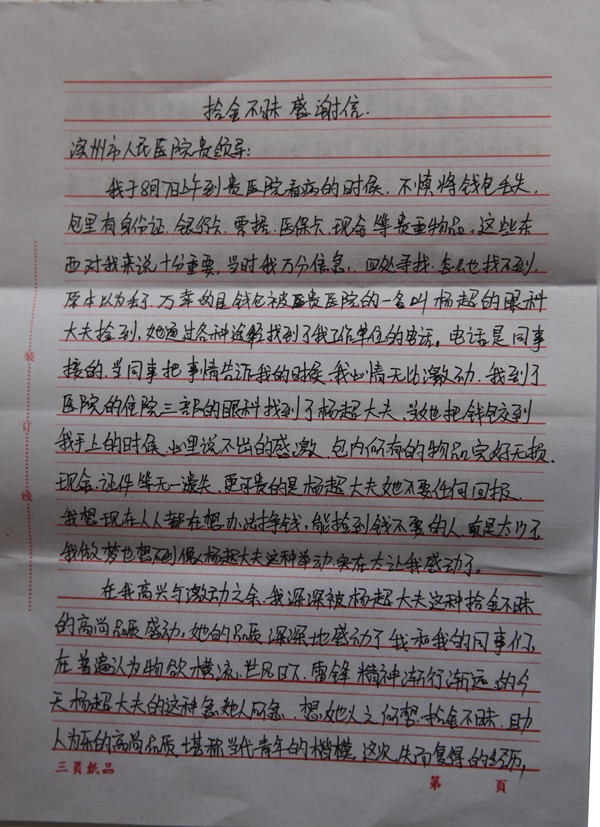 拾金不昧感谢信.
滨州市人民医院贵领导:
我于8月7日上午到贵医院看病的时候.不慎将钱包丢失,
包里有身份证.银行卡.票据.医保卡.现金等贵重物品。这些东
西对我来说十分重要,当时我万分信息,四处寻找,怎么也找不到,
原本以为丢了.万幸的是钱包被贵医院的一名叫杨超的眼科
大夫捡到,她通过各种途径找到了我工作单位的电话。电话是同事
接的,当同事把事情告诉我的时候,我心情无比激动,我到了
医院的住院三部的眼科找到了杨超大夫.当她把钱包交到
我手上的时候.心里说不出的感激.包内所有的物品完好无损.
现金.证件等无一遗失.更可贵的是杨超大夫她不要任何回报.
我想现在人人都在想办法挣钱,能捡到钱不要的人真是太少了
我做梦也想不到像杨超大夫这种举动.实在太让我感动了。
在我高兴与激动之余.我深深被杨超大夫这种拾金不昧
的高尚品质感动,她的品质深深地感动了我和我的同事们,
在普遍认为物欲横流,世风日下.雷锋精神渐行渐远的今
天杨超大夫的这种急她人所急.想她人之所想.拾金不昧.助
人为乐的高尚品质.堪称当代青年的楷模.这次失而复得的经历,
装
订
线
三員紙品
第 頁